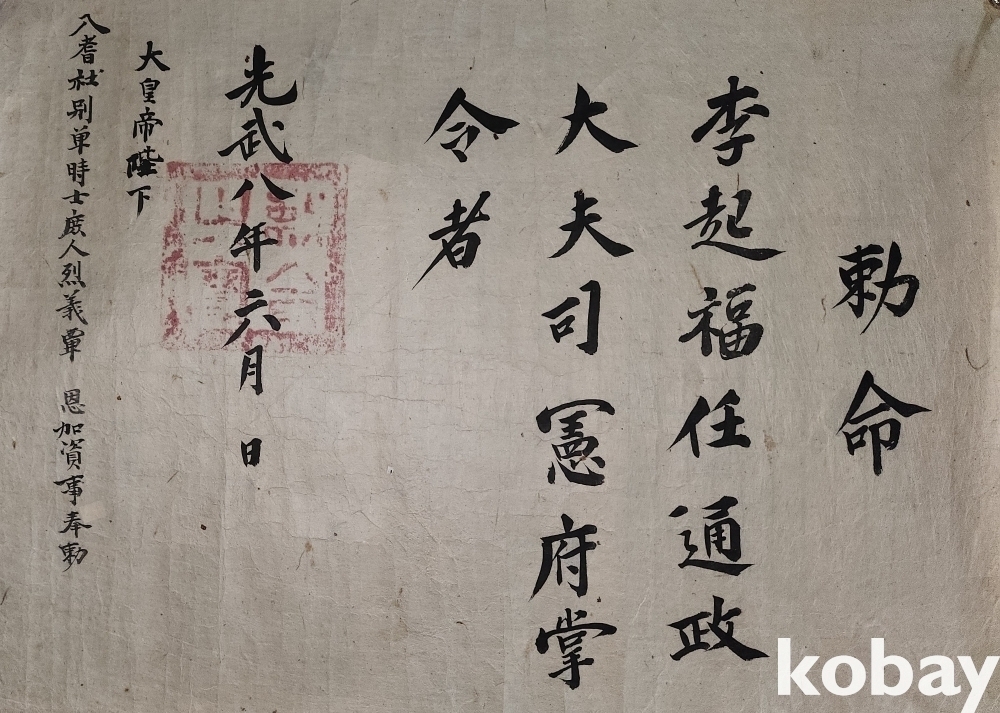 勅命
李起福任通政
大夫司憲府掌
令者
光武八年六月 日
大皇帝陛下
八耆社別單時士庶人烈義覃 恩加資事奉勅
kobay